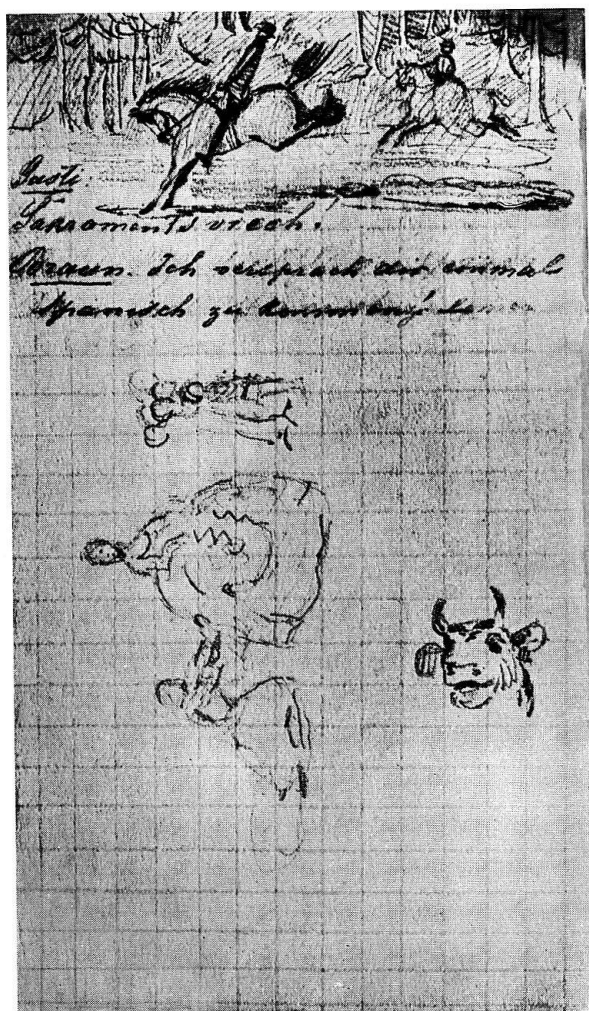 Gusti.
Sakraments viech!
Braun. Ich versprach dir einmal
Spanisch zu kommen,